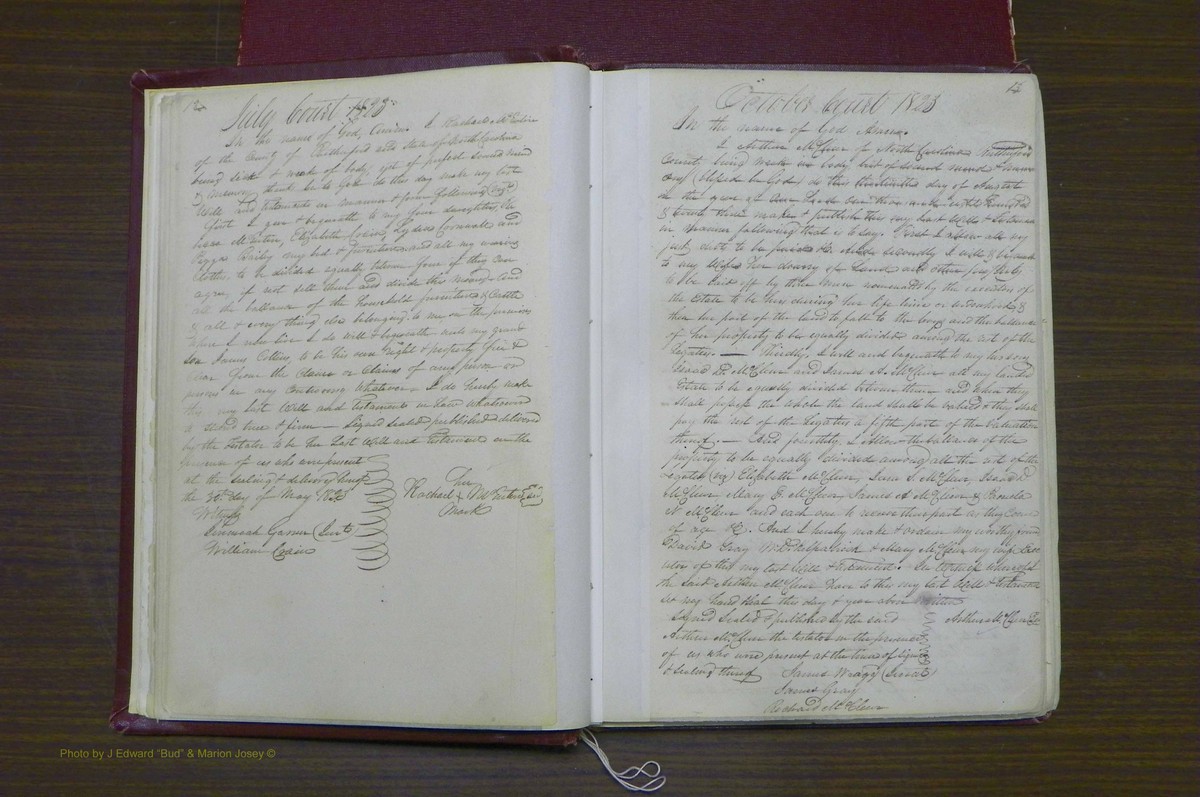 July Court 1823
In the name of God, Amen. I Rachael McEntire
of the County of Rutherford and State of North Carolina
being sick & weak of body, yet of perfect sound mind
& memory thanks be to God do this day make my last
Will and testament in manner & form following (viz)
first I give & bequeath to my four daughters,
McEntire, Elizabeth, Lydia and
Baily my bed & furniture and all my wearing
clothes to be divided equally between four if they can
agree, if not sell them and divide the money and
all the ballance of the household furniture & Cattle
& all & every thing else belonging to me on the premises
where I now live I do will & bequeath unto my grand
Son James Collins to be his own right & property free &
clear from the Claim or Claims of any person or
persons in any controversy Whatever. I do hereby make
this my last Will and testament in form whatsoever
firm — Signed sealed published & delivered
by the testator to be her Last Will and Testament in the
presence of us who were present
at the sealing & delivery thereof
the day of May 1823
her
Rachael X McEntire Seal
Mark
Witness
Garner (Jurat)
William
October Court 1823
In the name of God Amen.
I Arthur McClure of North Carolina Rutherford
County being weak in body but of sound mind & mem
ory (blessed be God) do this thirteenth day of August
in the year of our Lord one thousand eight hundred
& twenty three make & publish this my last Will & testament
in manner following that is to say. First I allow all my
just debts to be paid &c. And secondly I will & bequeath
to my Wife her dowery of Land and other property
to be laid off by three men nominated by the executors of
the estate to be hers during her life time or widowhood &
then her part of the land to fall to the boys and the ballance
of her property to be equally divided among the rest of the
legatees. — Thirdly. I will and bequeath to my two sons
Isaac D. McClure and James A. McClure all my landed
Estate to be equally divided between them and when they
shall possess the whole the land shall be valued & they shall
pay the rest of the legatees a fifth part of the valuation
thereof. — And fourthly, I allow the ballance of the
property to be equally divided among all the rest of the
legatees (viz) Elizabeth McClure, Jane S. McClure, Isaac D
McClure, Mary E. McClure, James A McClure &
N. McClure and each one to receive their part as they come
of age &c. And I hereby make & ordain my worthy friend
David Gray, Wm Kilpatrick & Mary McClure my wife Exe
cutor of this my last Will & testament. In Witness whereof I
the said Arthur McClure have to this my last Will & testament
set my hand & seal this day & year above written
Signed Sealed & published by the said Arthur McClure Seal
Arthur McClure the testator in the presence
of us who were present at the time of signing
& sealing thereof James Wragg (Jurat)
James Gray
Richard McClure
Photo by J Edward "Bud" & Marion Josey ©